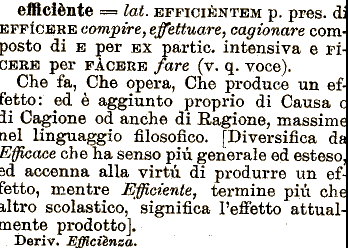 efficiènte = lat. EFFICIÈNTEM p. pres. di
EFFÍCERE compire, effettuare, cagionare com-
posto di E per EX partic. intensiva e FÍ-
CERE per FÀCERE fare (v. q. voce).
Che fa, Che opera, Che produce un ef-
fetto: ed è aggiunto proprio di Causa o
di Cagione od anche di Ragione, massime
nel linguaggio filosofico. [Diversifica da
Efficace che ha senso piú generale ed esteso,
ed accenna alla virtú di produrre un ef-
fetto, mentre Efficiente, termine piú che
altro scolastico, significa l'effetto attual-
mente prodotto].
Deriv. Efficiènza.